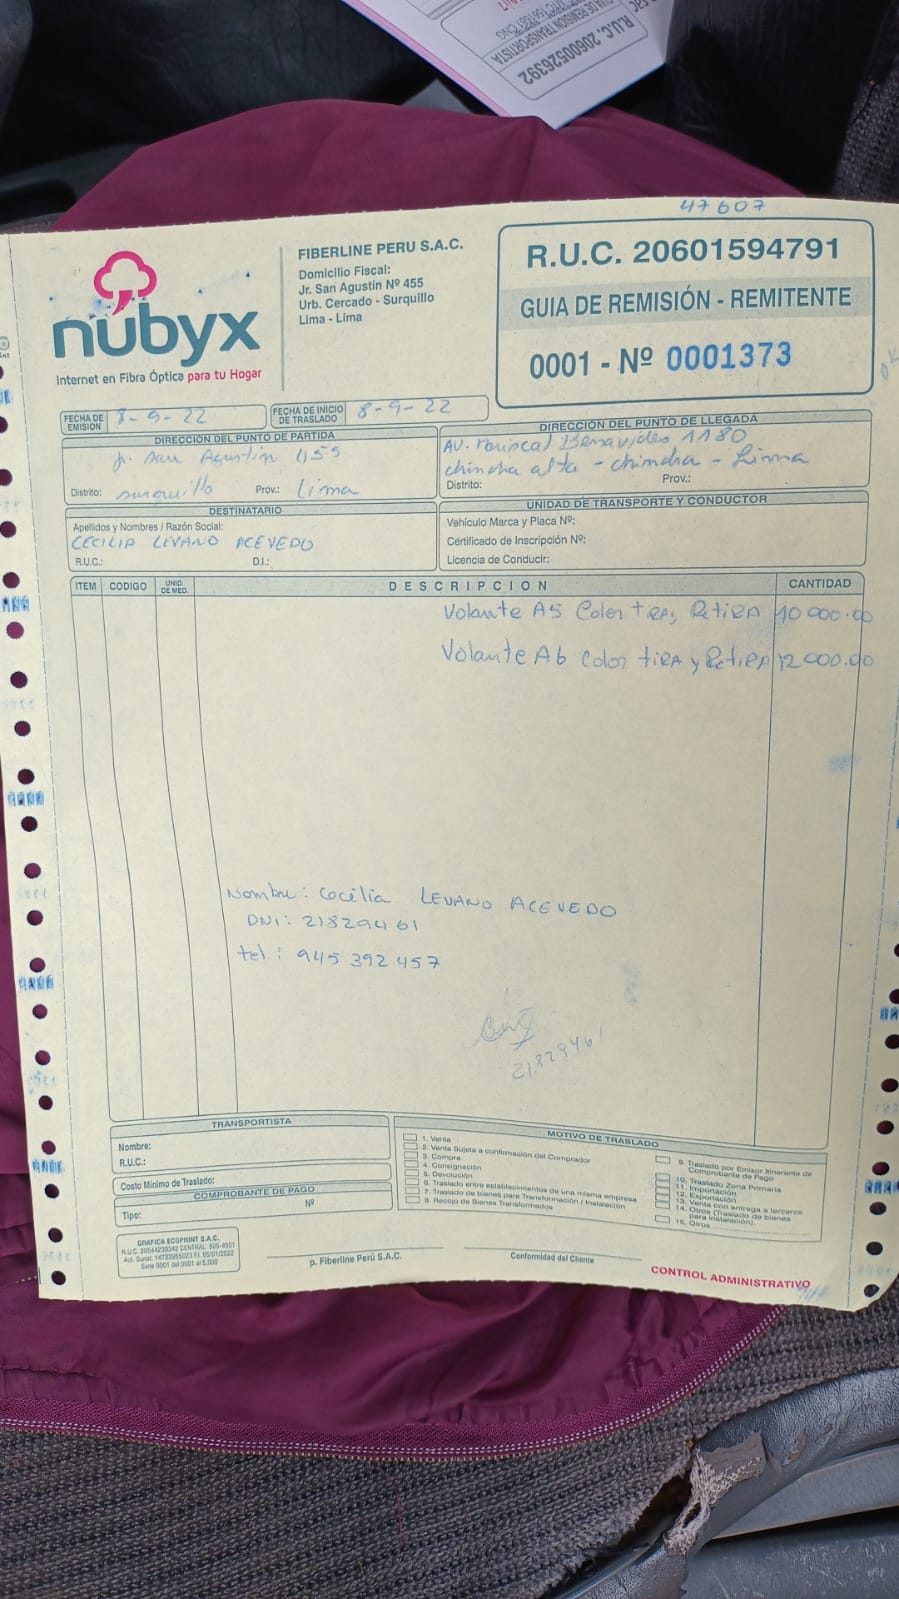 R.U.C. 20600526392
47607
nubyx
Internet en Fibra Óptica para tu Hogar
FIBERLINE PERU S.A.C.
Domicilio Fiscal:
Jr. San Agustín Nº 455
Urb. Cercado - Surquillo
Lima - Lima
R.U.C. 20601594791
GUIA DE REMISIÓN - REMITENTE
0001 - Nº 0001373
FECHA DE EMISIÓN 8-9-22
FECHA DE INICIO DE TRASLADO 8-9-22
DIRECCIÓN DEL PUNTO DE PARTIDA
Jr. San Agustin 455
Distrito: surquillo Prov.: Lima
DIRECCIÓN DEL PUNTO DE LLEGADA
AV. Mariscal Benavides 1180
chincha alta - chincha - Lima
Distrito: Prov.:
DESTINATARIO
Apellidos y Nombres / Razón Social:
CECILIA LEVANO ACEVEDO
R.U.C.: D.I.:
UNIDAD DE TRANSPORTE Y CONDUCTOR
Vehículo Marca y Placa Nº:
Certificado de Inscripción Nº:
Licencia de Conducir:
ITEM CODIGO UNID. DE MED. DESCRIPCION CANTIDAD
Volante A5 Color tiRA y RetiRA 10 000.00
Volante A6 Color tiRA y RetiRA 12 000.00
Nombre: Cecilia LEVANO ACEVEDO
DNI: 21829461
tel: 945 392 457
21829461
TRANSPORTISTA
Nombre:
R.U.C.:
Costo Mínimo de Traslado:
COMPROBANTE DE PAGO
Tipo: Nº
MOTIVO DE TRASLADO
1. Venta
2. Venta Sujeta a confirmación del Comprador
3. Compra
4. Consignación
5. Devolución
6. Traslado entre establecimientos de una misma empresa
7. Traslado de bienes para Transformación / Instalación
8. Recojo de Bienes Transformados
9. Traslado por Emisor Itinerante de Comprobante de Pago
10. Traslado Zona Primaria
11. Importación
12. Exportación
13. Venta con entrega a terceros
14. Otros (Traslado de bienes para instalación).
15. Otros
GRAFICA ECOPRINT S.A.C.
R.U.C. 20544239342 CENTRAL: 505-4501
Aut. Sunat: 14722955023 F.I. 05/01/2022
Serie 0001 del 0001 al 5,000
p. Fiberline Perú S.A.C.
Conformidad del Cliente
CONTROL ADMINISTRATIVO